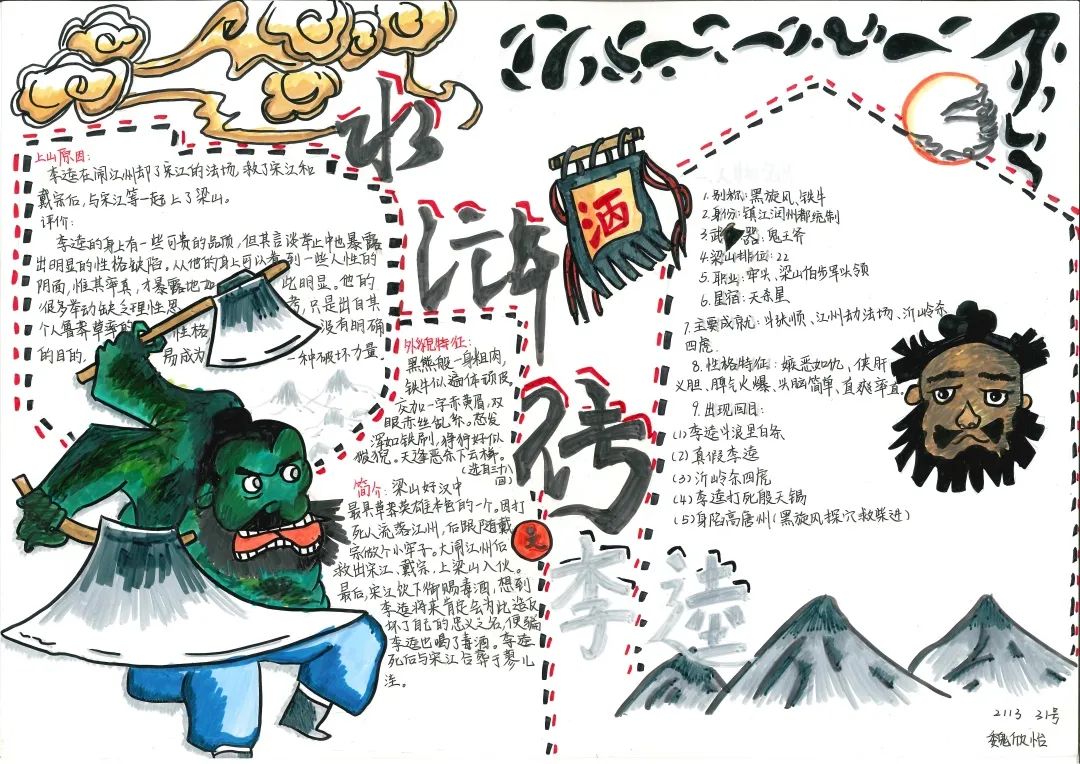 水
浒
传
李逵
酒
上山原因:
李逵在闹江州却了宋江的法场,救了宋江和
戴宗后,与宋江等一起上了梁山。
评价:
李逵的身上有一些可贵的品质,但其言谈举止中也暴露
出明显的性格缺陷。从他的身上可以看到一些人性的
阴面,惟其率真,才暴露也加 此明显。他的
很多举动缺乏理性思 考,只是出自其
个人鲁莽草率的 性格 没有明确
的目的, 易成为 一种破坏力量。
外貌特征:
黑熊般一身粗肉,
铁牛似遍体顽皮。
交加一字赤黄眉,双
眼赤丝乱系。怒发
浑如铁刷,狰狞好似
狻猊。天蓬恶杀下云梯。
(选自三十八
回)
简介:梁山好汉中
最具草莽英雄本色的一个。因打
死人流落江州,后跟随戴
宗做个小牢子。大闹江州后
救出宋江、戴宗,上梁山入伙。
最后,宋江饮下御赐毒酒,想到
李逵将来肯定会为此造反
坏了自己的忠义之名,便骗
李逵也喝了毒酒。李逵
死后与宋江合葬于蓼儿
洼。
1.别称:黑旋风、铁牛
2.身份:镇江润州都统制
3.武 器:鬼王斧
4.梁山排位:22
5.职业:牢头、梁山伯步军头领
6.星宿:天杀星
7.主要成就:斗张顺、江州劫法场、沂岭杀
四虎
8.性格特征:嫉恶如仇、侠肝
义胆、脾气火爆、头脑简单、直爽率直
9.出现回目:
(1)李逵斗浪里白条
(2)真假李逵
(3)沂岭杀四虎
(4)李逵打死殷天锡
(5)身陷高唐州(黑旋风探穴救柴进)
2113 31号
魏欣怡